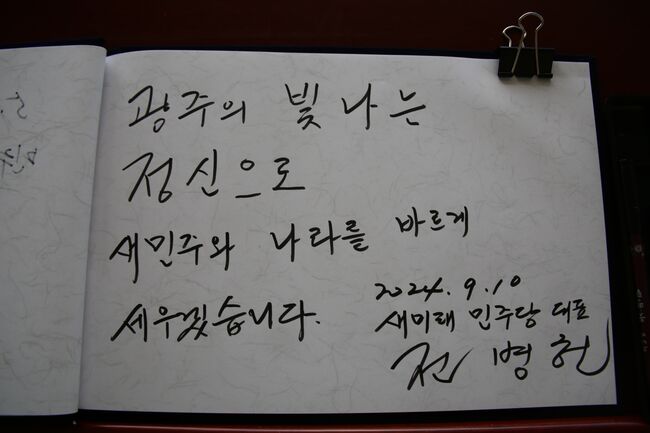 광주의 빛나는
정신으로
새민주와 나라를 바르게
세우겠습니다.
2024. 9. 10
새미래 민주당 대표
전병헌